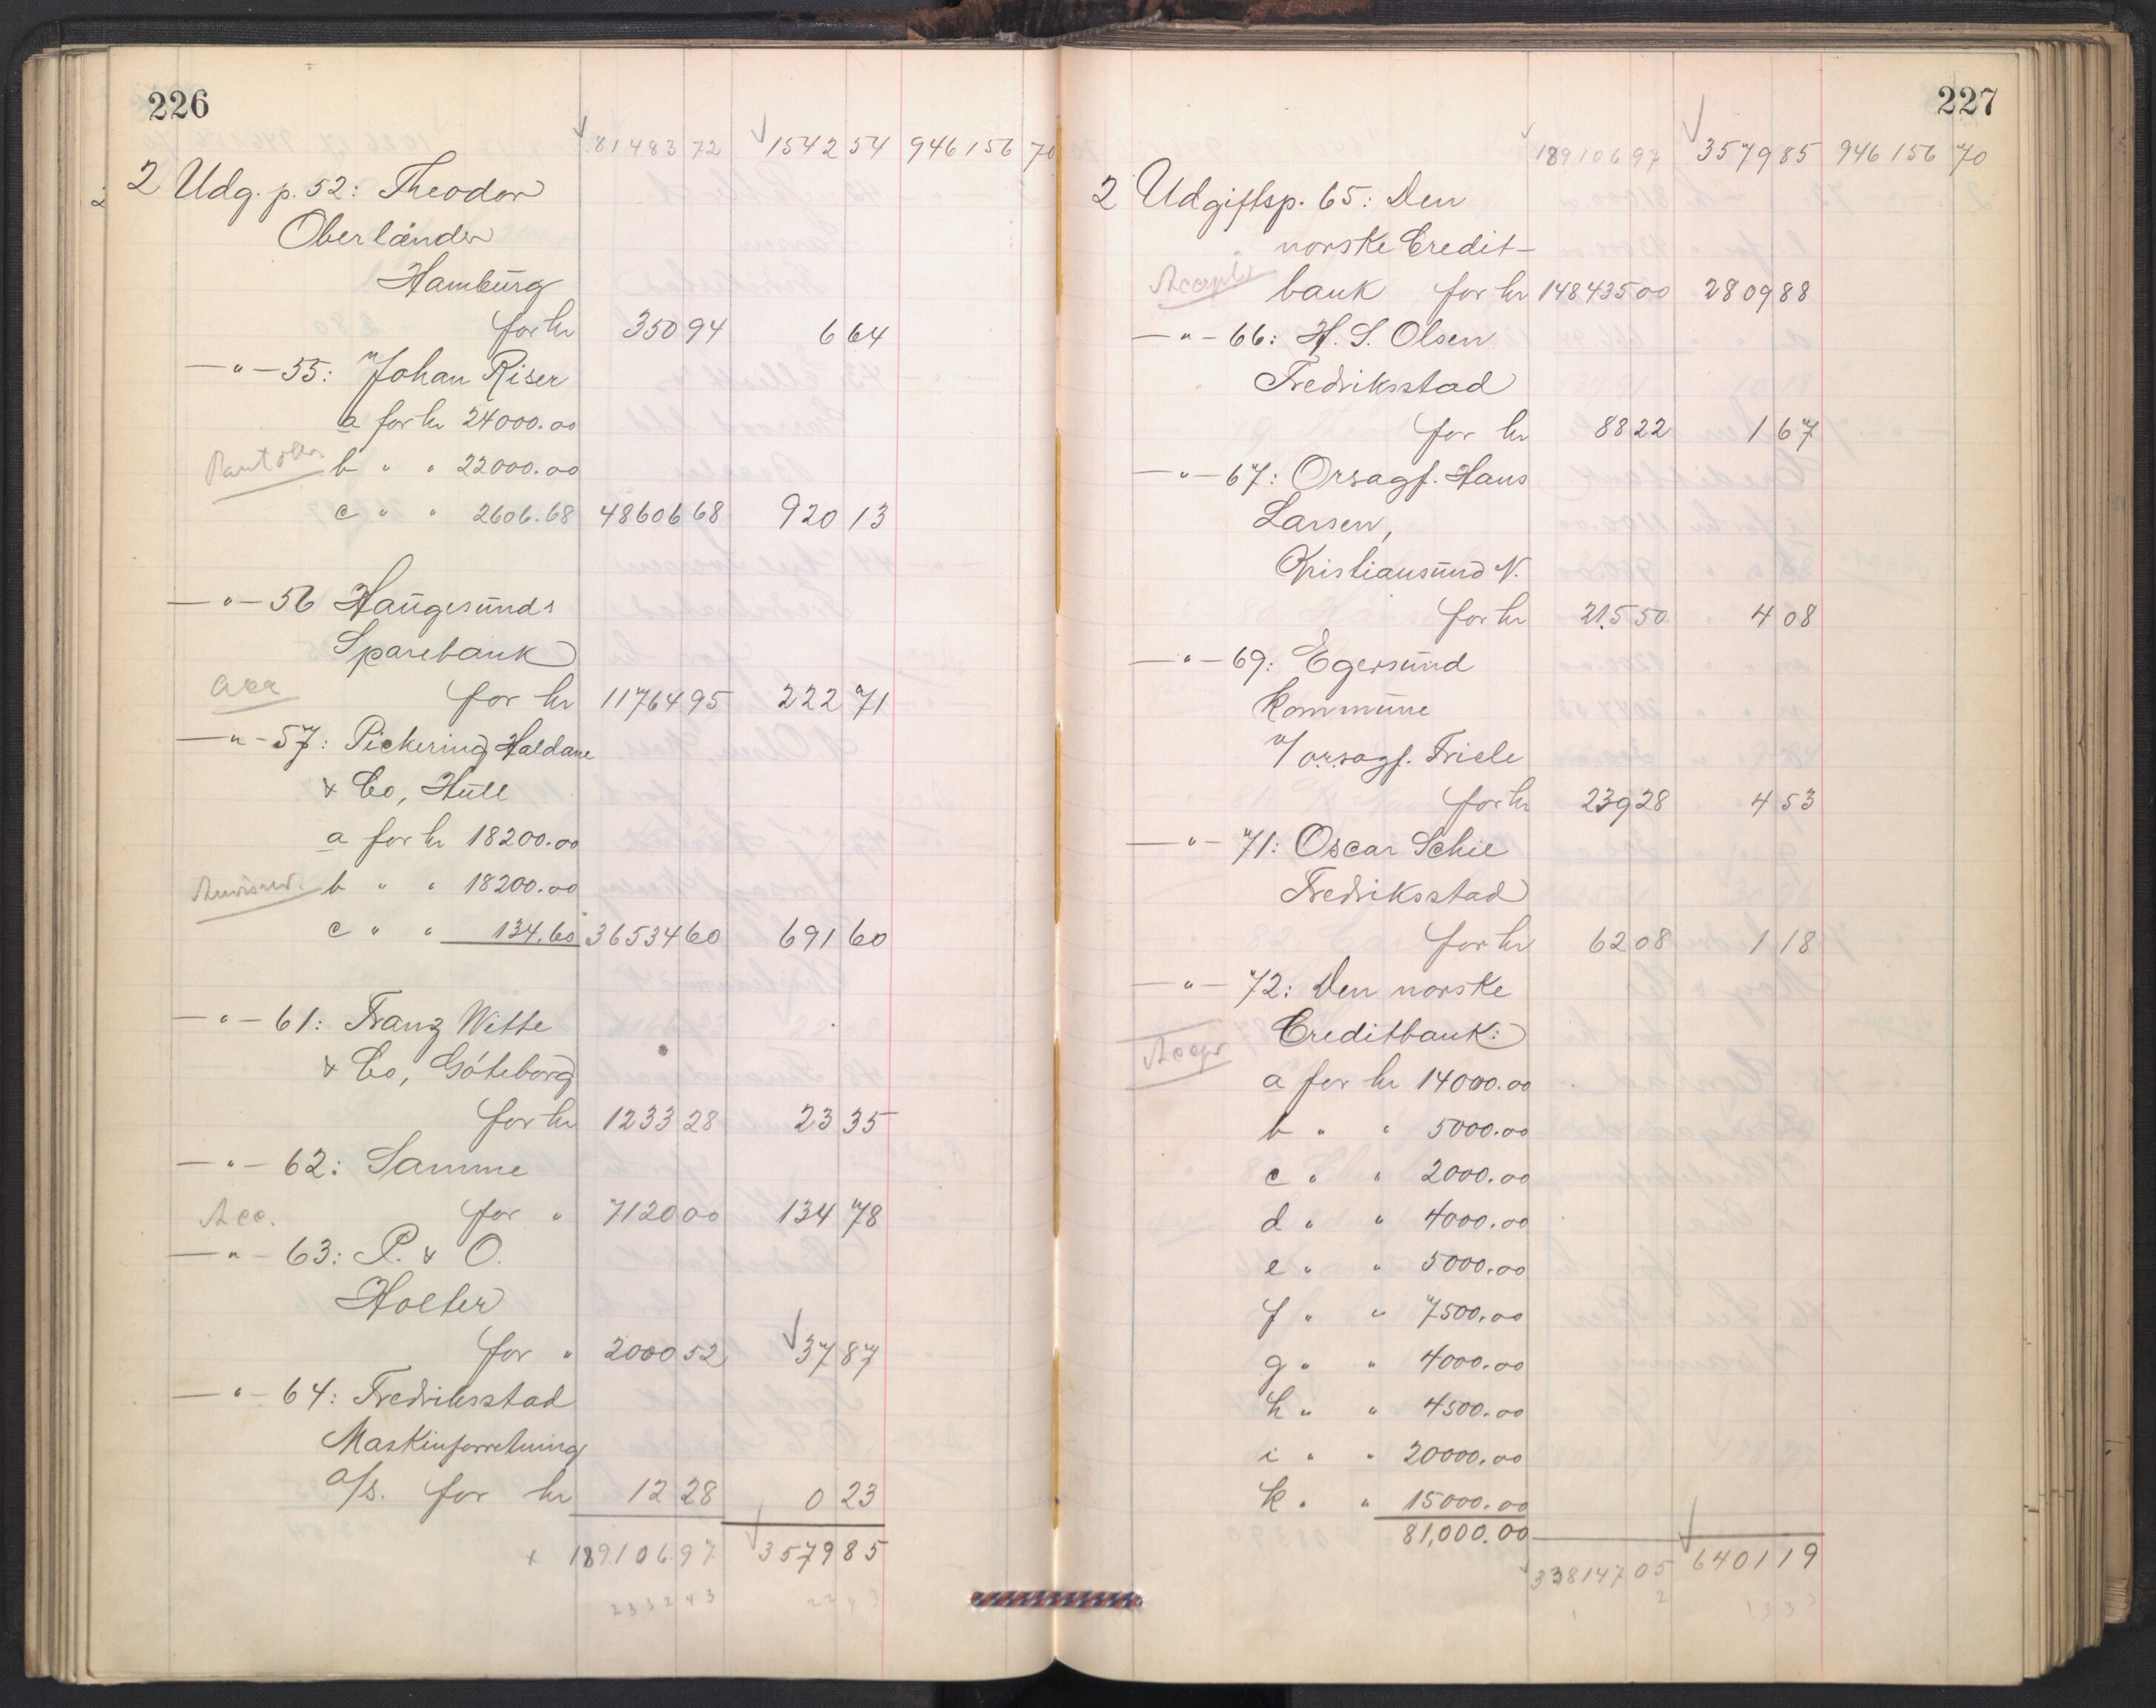 226
81483 72 1542 54 946156 70
2 Udg. p. 52: Theodor
Oberländer
Hamburg
for kr 350 94 6 64
— " — 55: Johan Riser
a for kr 24000.00
Pantobl. b " " 22000.00
c " " 2606.68 48606 68 920 13
— " — 56 Haugesunds
Sparebank
for kr 11764 95 222 71
— " — 57: Pickering Haldane
& Co, Hull
a for kr 18200.00
b " " 18200.00
c " " 134.60 36534 60 691 60
— " — 61: Franz Witte
& Co, Göteborg
for kr 1233 28 23 35
— " — 62: Samme
Acc. for " 7120 00 134 78
— " — 63: P. & O.
Holter
for " 2000 52 37 87
— " — 64: Fredriksstad
Maskinforretning
a/s. for kr 12 28 0 23
189106 97 3579 85
233243
227
189106 97 3579 85 946156 70
2 Udgiftsp. 65: Den
norske Credit-
Accepter bank for kr 148435 00 2809 88
— " — 66: H. S. Olsen
Fredriksstad
for kr 88 22 1 67
— " — 67: Orsagf. Hans
Larsen,
Kristiansund N.
for kr 215 50 4 08
— " — 69: Egersund
Kommune
v/ o.r.sagf. Friele
for kr 239 28 4 53
— " — 71: Oscar Schie
Fredriksstad
for kr 62 08 1 18
— " — 72: Den norske
Creditbank:
Accpr a for kr 14000.00
b " " 5000.00
c " " 2000.00
d " " 4000.00
e " " 5000.00
f " " 7500.00
g " " 4000.00
h " " 4500.00
i " " 20000.00
k " " 15000.00
81,000.00
338147 05 6401 19